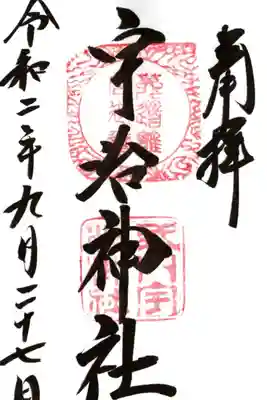 奉拝
宇治神社
令和二年九月二十七日